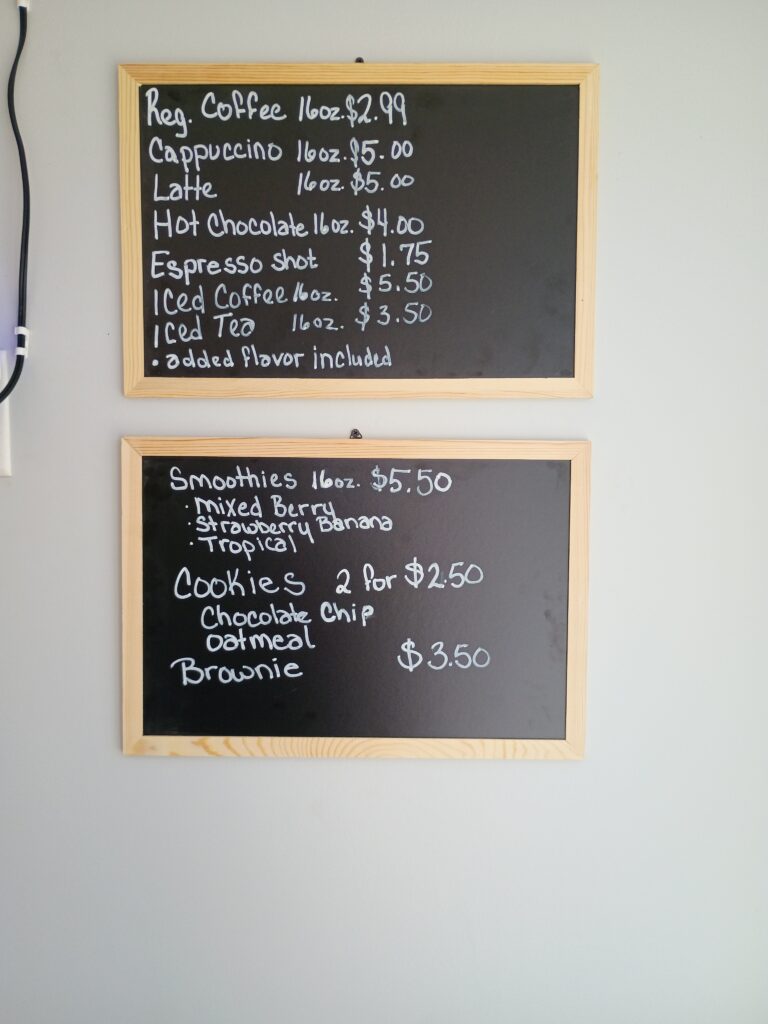 Reg. Coffee 16oz. $2.99
Cappuccino 16oz. $5.00
Latte 16oz. $5.00
Hot Chocolate 16oz. $4.00
Espresso shot $1.75
Iced Coffee 16oz. $5.50
Iced Tea 16oz. $3.50
• added flavor included
Smoothies 16oz. $5.50
• Mixed Berry
• Strawberry Banana
• Tropical
Cookies 2 for $2.50
Chocolate Chip
Oatmeal
Brownie $3.50